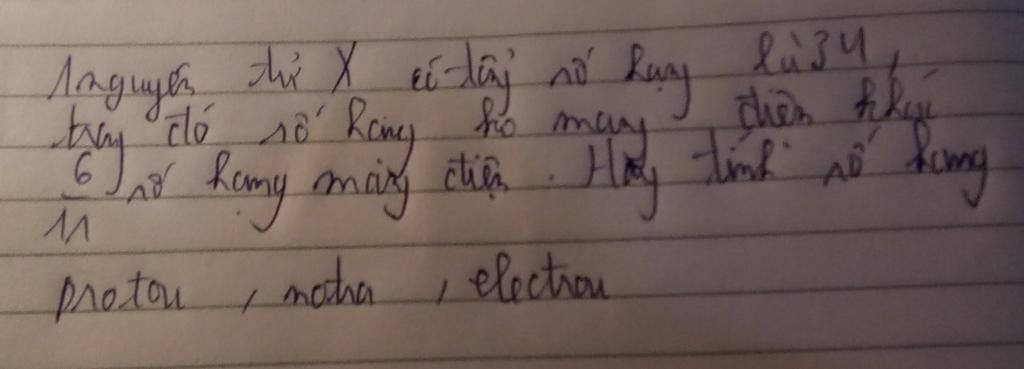 1 nguyên tử X có tổng số hạng là 34,
trong đó số hạng ko mang điện
6/11 số hạng mang điện. Hãy tính số hạng
proton, notron, electron